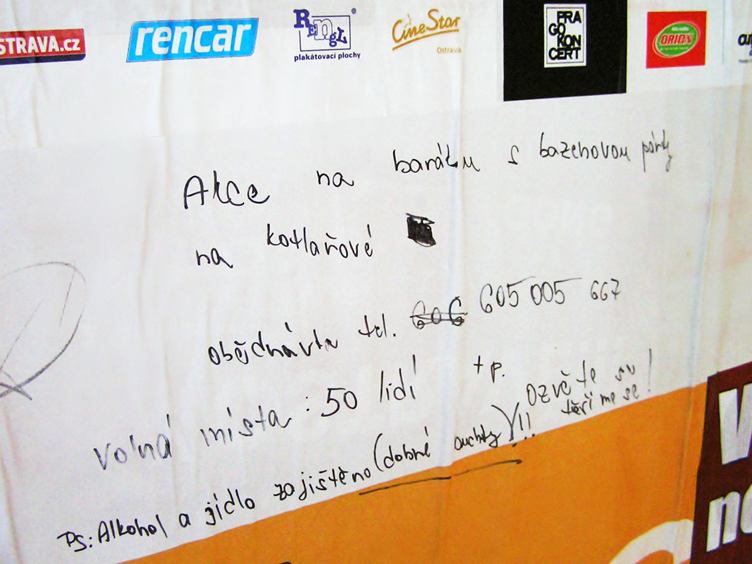 STRAVA.cz
rencar
RENGL
plakátovací plochy
CineStar
Ostrava
PRA
GO KON
CERT
ORION
Akce na baráku s bazenovou párty
na kotlařové
objednávka tel. 606 605 005 667
volná místa : 50 lidí + p. Ozvěte se
těší me se!
PS: Alkohol a jídlo zajištěno (dobné buchty)!!!